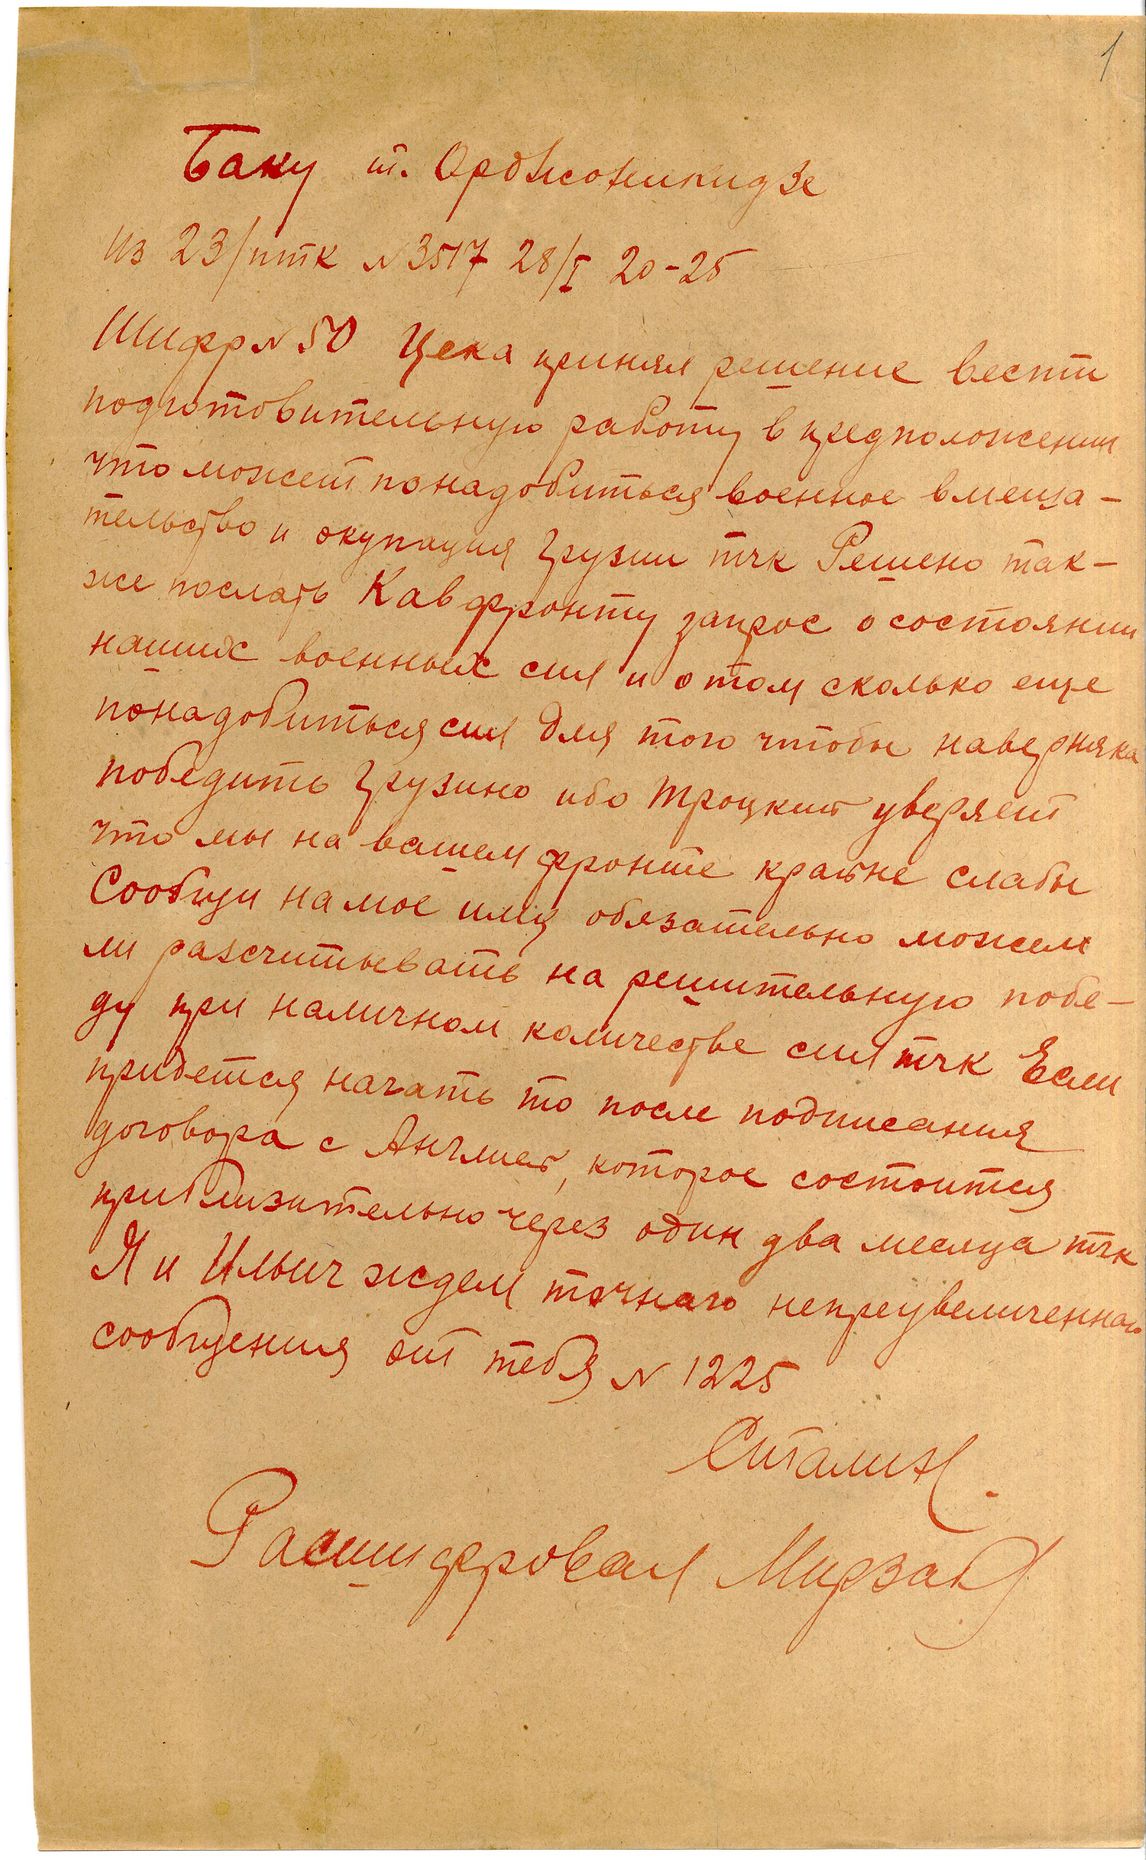 1
Баку т. Орджоникидзе
Из 23/птк №3517 28/I 20-25
Шифр №50 Цека принял решение вести
подготовительную работу в предположении
что может понадобиться военное вмеша-
тельство и окупация Грузии тчк Решено так-
же послать Кавфронту запрос о состоянии
наших военных сил и о том сколько еще
понадобиться сил для того чтобы наверняка
победить Грузию ибо Троцкий уверяет
что мы на вашем фронте крайне слабы
Сообщи на мое имя обязательно можем
ли разсчитывать на решительную побе-
ду при наличном количестве сил тчк Если
придется начать то после подписания
договора с Англией, которое состоится
приблизительно через один два месяца тчк
Я и Ильич ждем точного непреувеличенного
сообщения от тебя № 1225
Сталин.
Расшифровал Мирзан